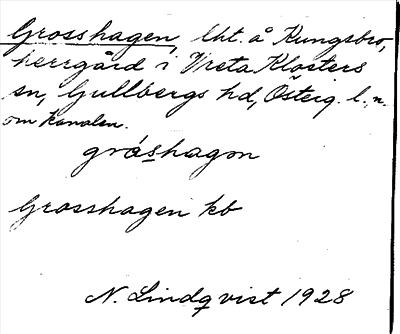 Grosshagen, lht. å Kungsbro,
herrgård i Vreta Klosters
sn, Gullbergs hd, Österg. l., n.
om kanalen.
gråshagon
Grosshagen kb
N. Lindqvist 1928